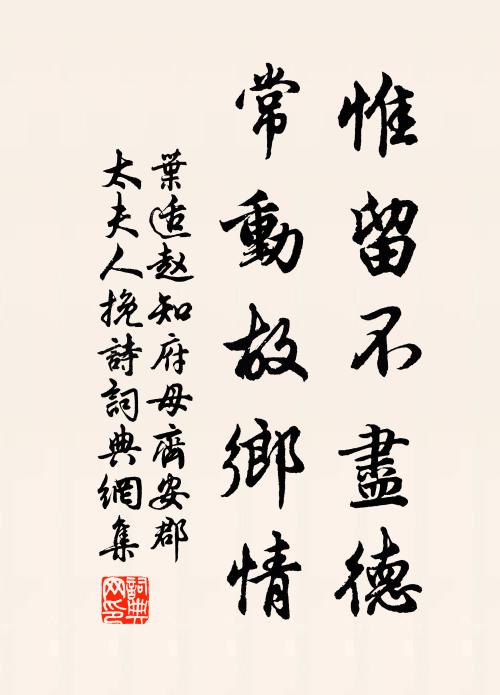 惟留不盡德
常動故鄉情
葉适趙知府母齊安郡
太夫人挽詩詞典網集
詞典网印